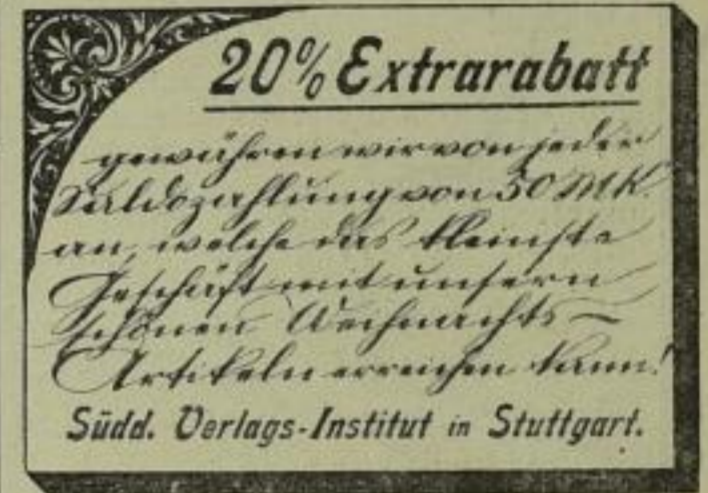 20% Extrarabatt
gewähren wir von jeder
Saldozahlung von 50 Mk.
an, welche das kleinste
Geschäft mit unsern
schönen Weihnachts-
Artikeln erreichen kann!
Südd. Verlags-Institut in Stuttgart.